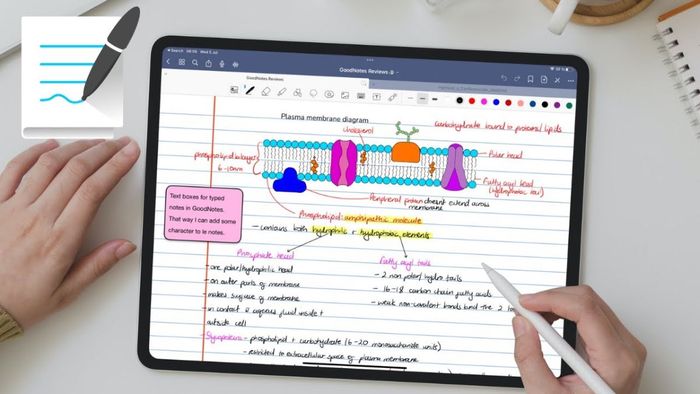 Search 08:09 Wed 5 Jul
GoodNotes Reviews
GoodNotes Reviews
Plasma membrane diagram
cholesterol
Carbohydrate bound to proteins/lipids
phospholipid bilayer
6-10nm
Polar head
Fatty acyl tail
(hydrophobic tail)
Peripheral protein doesnt extend across
membrane
Text boxes for typed
notes in GoodNotes.
That way I can add some
character to le notes.
Phospholipid: amphipathic molecule
- contains both hydrophilic & hydrophobic elements
Phosphate head
- one polar/hydrophilic head
- on outer parts of membrane
- makes surface of membrane
- in contact & aqueous fluid inside +
outside cell
Fatty acyl tails
- 2 non polar/ hydro tails
- 16-18 carbon chain fatty acids
- weak non-covalent bonds bind the 2
- phospholipid + carbohydrate (6-20 monosaccharide units)
- restricted to extracellular space of plasma membrane